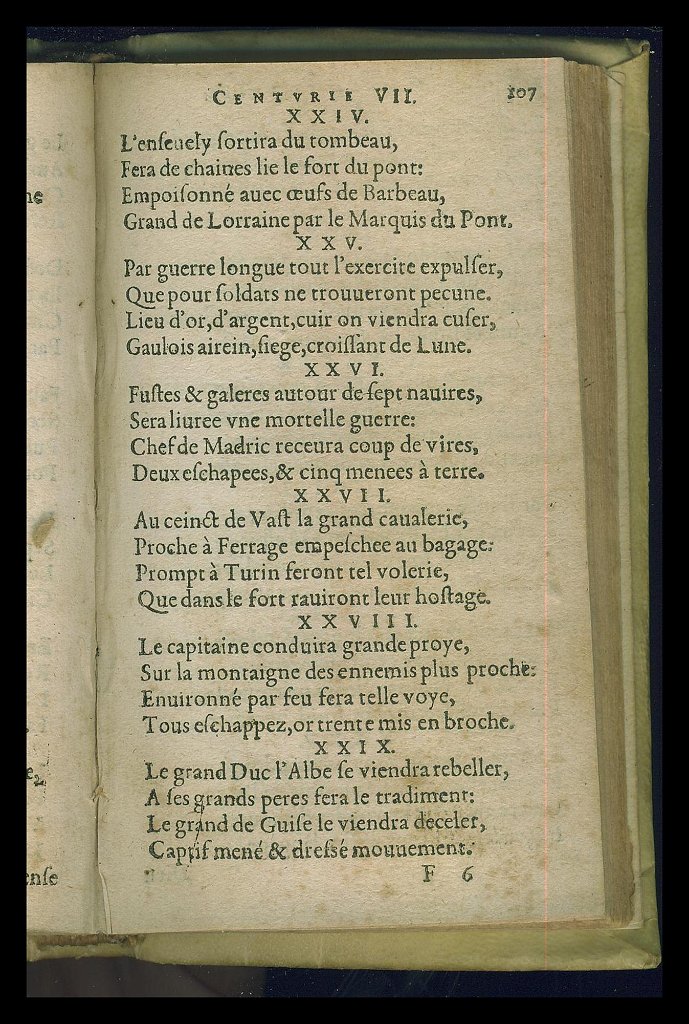 CENTVRIE VII. 107
XXIV.
L'enſeuely ſortira du tombeau,
Fera de chaines lie le fort du pont:
Empoiſonné auec œufs de Barbeau,
Grand de Lorraine par le Marquis du Pont.
XXV.
Par guerre longue tout l'exercite expulſer,
Que pour ſoldats ne trouueront pecune.
Lieu d'or, d'argent, cuir on viendra cuſer,
Gaulois airein, ſiege, croiſſant de Lune.
XXVI.
Fuſtes & galeres autour de ſept nauires,
Sera liuree vne mortelle guerre:
Chef de Madric receura coup de vires,
Deux eſchapees, & cinq menees à terre.
XXVII.
Au ceinct de Vaſt la grand caualerie,
Proche à Ferrage empeſchee au bagage:
Prompt à Turin feront tel volerie,
Que dans le fort rauiront leur hoſtage.
XXVIII.
Le capitaine conduira grande proye,
Sur la montaigne des ennemis plus proche:
Enuironné par feu fera telle voye,
Tous eſchappez, or trente mis en broche.
XXIX.
Le grand Duc l'Albe ſe viendra rebeller,
A ſes grands peres fera le tradiment:
Le grand de Guiſe le viendra deceler,
Captif mené & dreſsé mouuement.
F 6